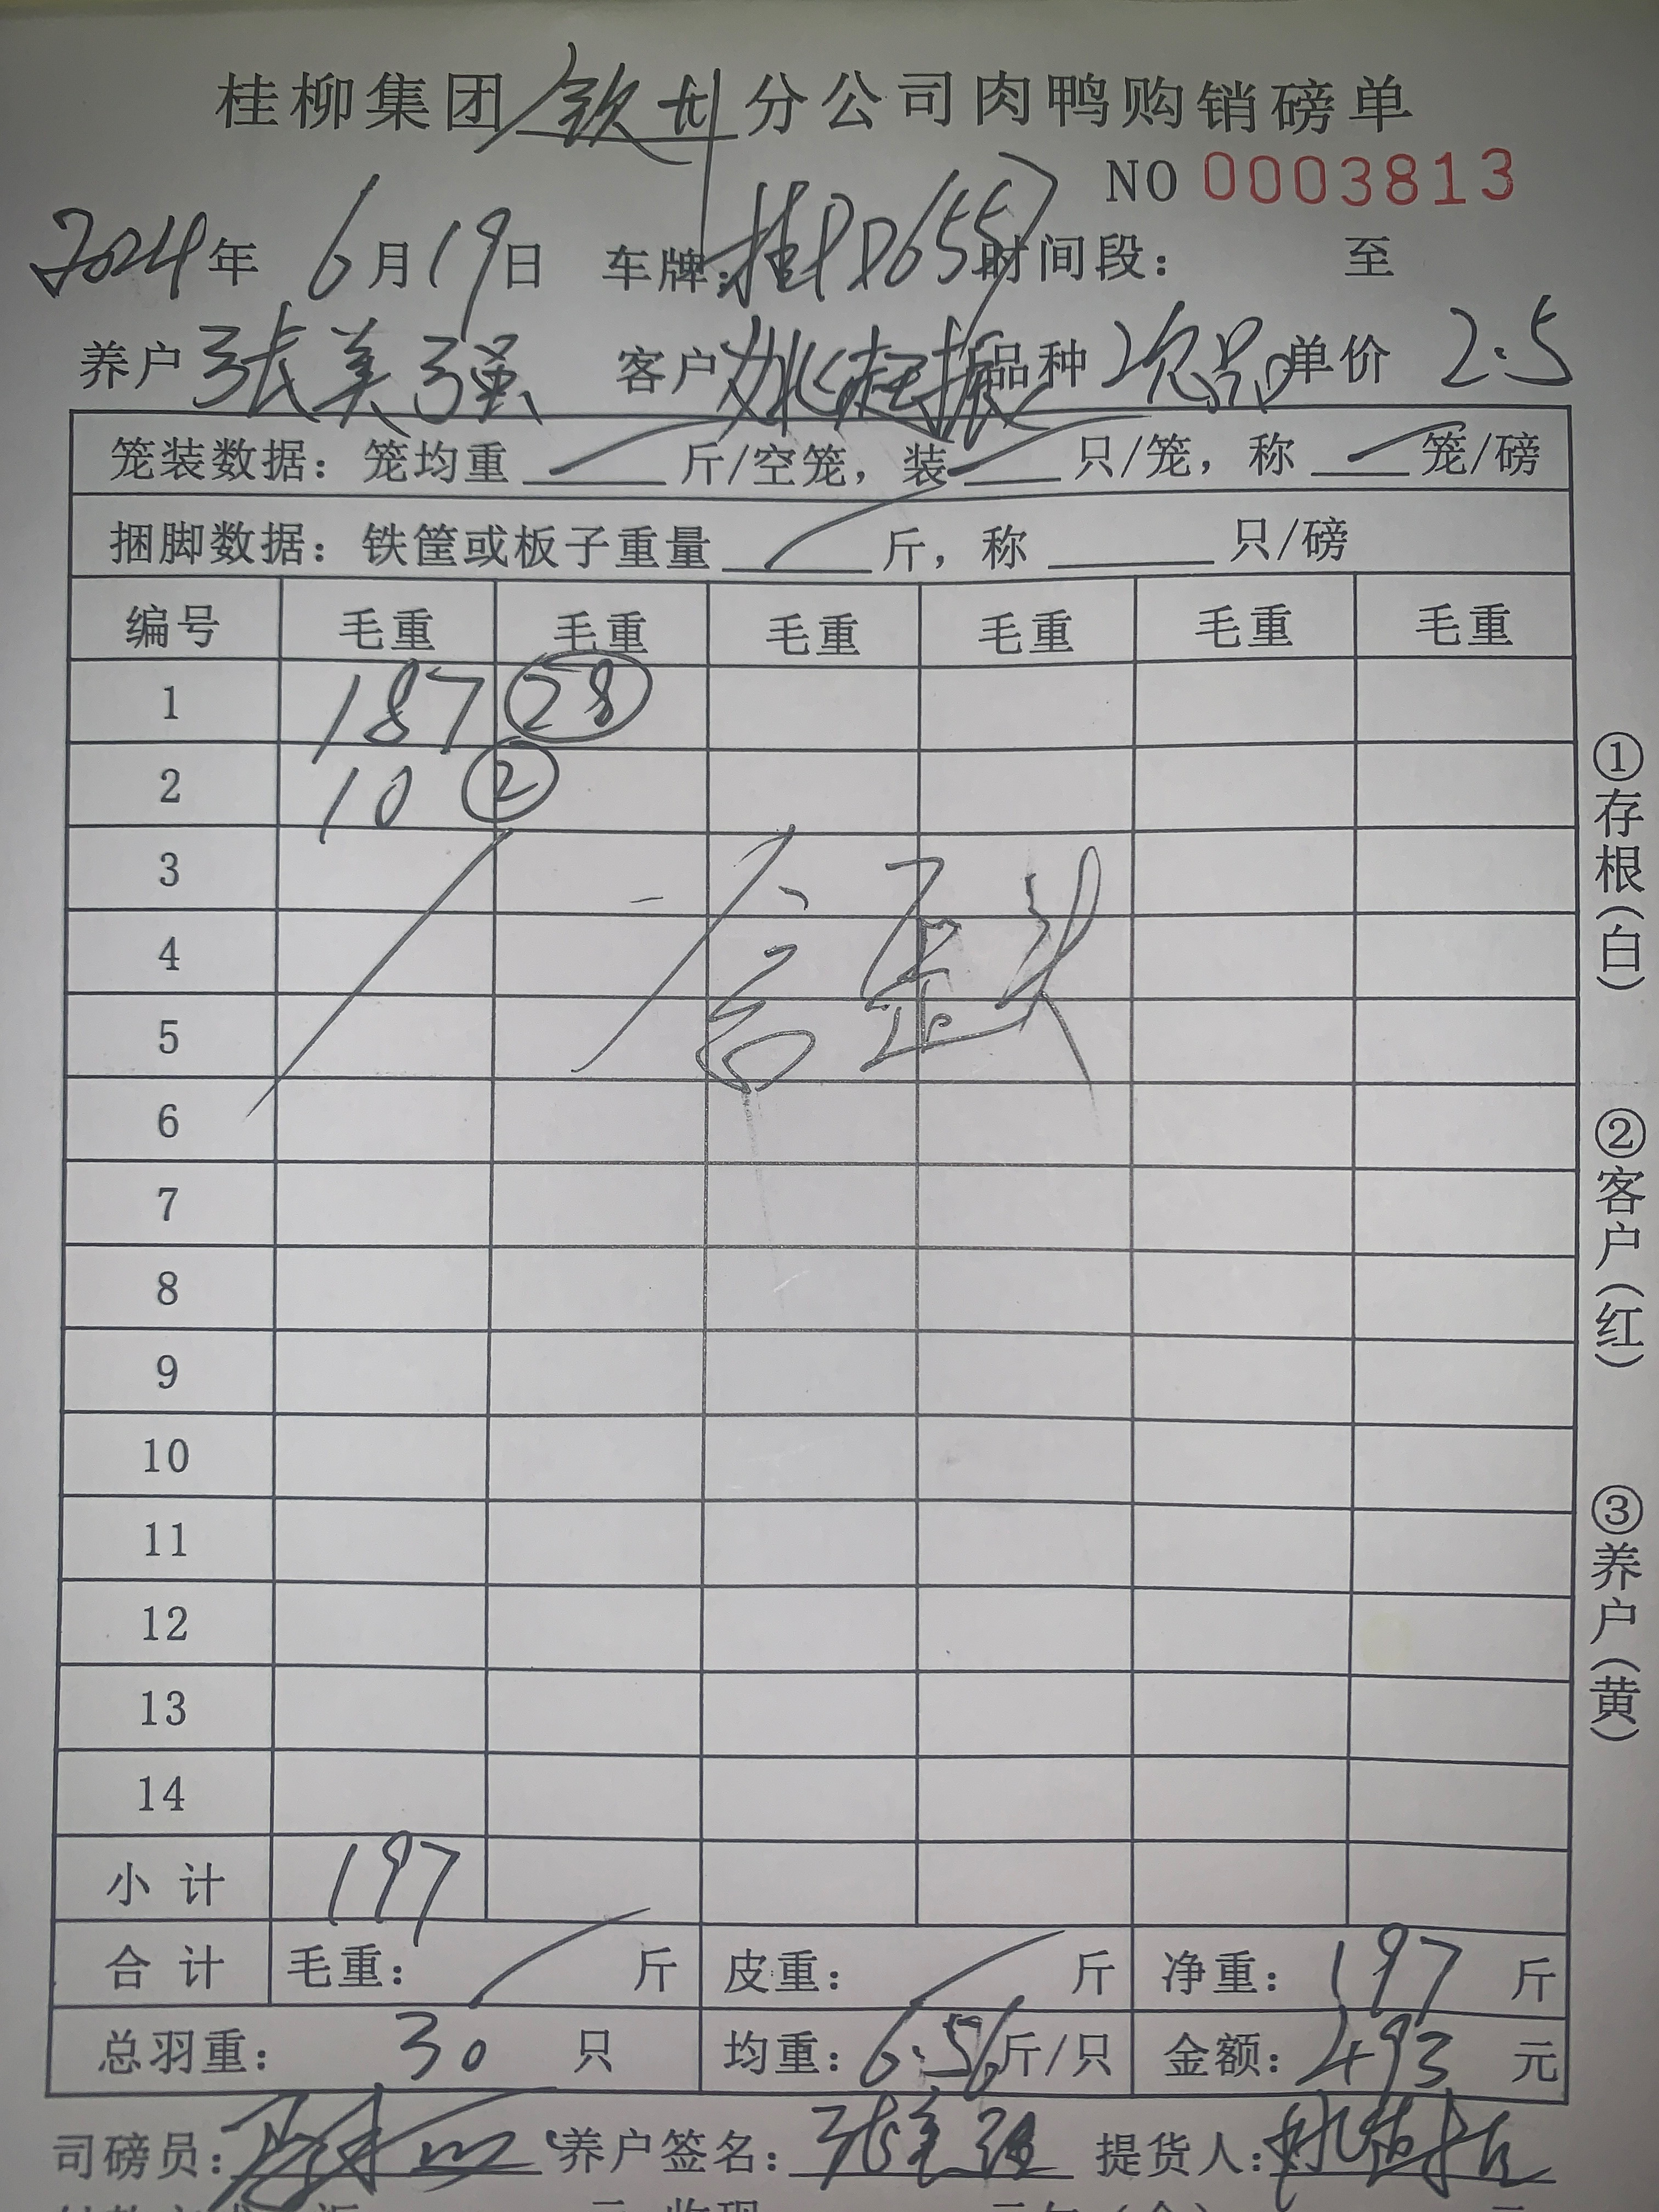 桂柳集团钦州分公司肉鸭购销磅单
NO 0003813
2024年 6月19日 车牌:桂PD6557时间段: 至
养户 张美强 客户 姚桂振 品种 次品 单价 2.5
笼装数据: 笼均重 斤/空笼, 装 只/笼, 称 笼/磅
捆脚数据: 铁筐或板子重量 斤, 称 只/磅
编号 毛重 毛重 毛重 毛重 毛重 毛重
1 187 28
2 10 2
3
4
5
6
7
8
9
10
11
12
13
14
含歪头
小计 197
合计 毛重: 斤 皮重: 斤 净重: 197 斤
总羽重: 30 只 均重: 6.56斤/只 金额: 493 元
司磅员: 养户签名: 张美强 提货人:
①存根(白) ②客户(红) ③养户(黄)